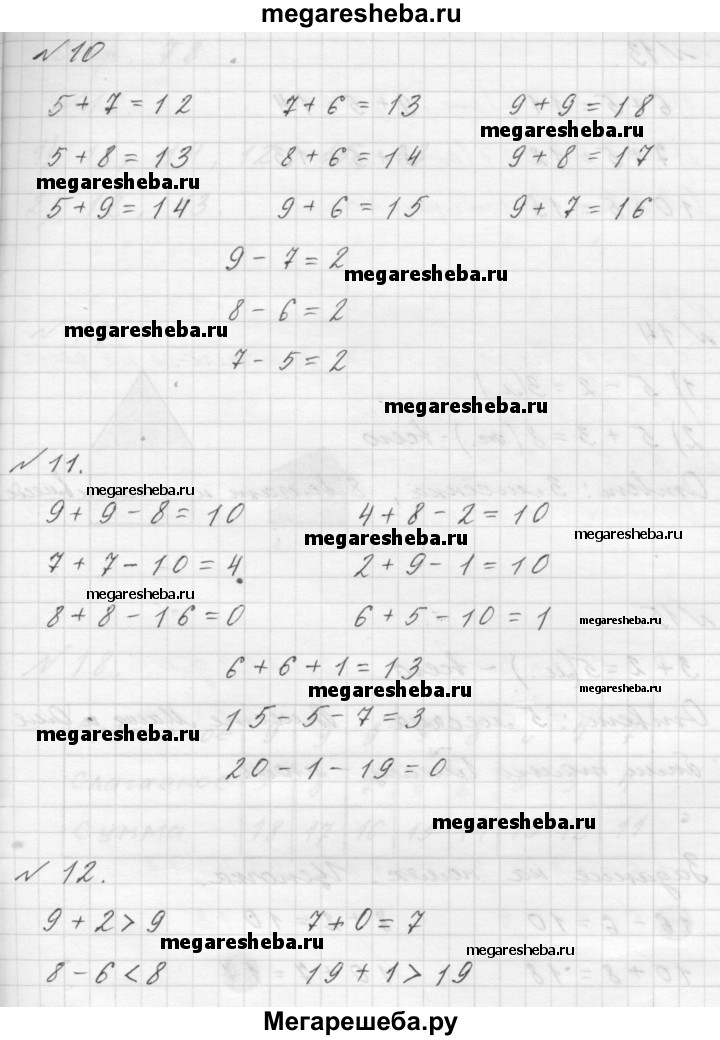 megaresheba.ru
№ 10
5 + 7 = 12 7 + 6 = 13 9 + 9 = 18
megaresheba.ru
5 + 8 = 13 8 + 6 = 14 9 + 8 = 17
megaresheba.ru
5 + 9 = 14 9 + 6 = 15 9 + 7 = 16
9 - 7 = 2
megaresheba.ru
8 - 6 = 2
megaresheba.ru
7 - 5 = 2
megaresheba.ru
№ 11.
megaresheba.ru
9 + 9 - 8 = 10 4 + 8 - 2 = 10
megaresheba.ru megaresheba.ru
7 + 7 - 10 = 4 2 + 9 - 1 = 10
megaresheba.ru
8 + 8 - 16 = 0 6 + 5 - 10 = 1
megaresheba.ru
6 + 6 + 1 = 13
megaresheba.ru megaresheba.ru
15 - 5 - 7 = 3
megaresheba.ru
20 - 1 - 19 = 0
megaresheba.ru
№ 12.
9 + 2 > 9 7 + 0 = 7
megaresheba.ru megaresheba.ru
8 - 6 < 8 19 + 1 > 19
Мегарешеба.ру